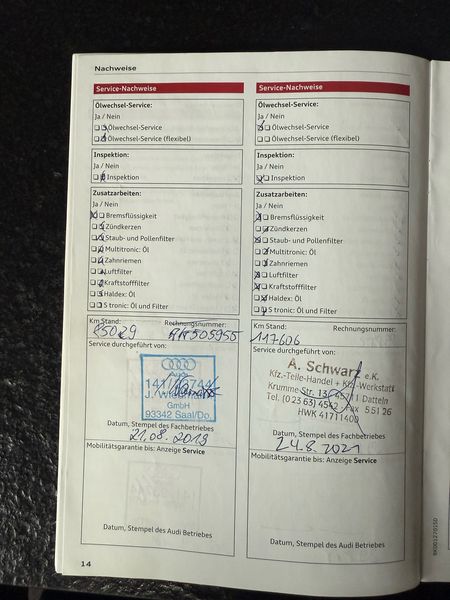 Nachweise
Service-Nachweise
Ölwechsel-Service:
Ja / Nein
Ölwechsel-Service
Ölwechsel-Service (flexibel)
Inspektion:
Ja / Nein
Inspektion
Zusatzarbeiten:
Ja / Nein
Bremsflüssigkeit
Zündkerzen
Staub- und Pollenfilter
Multitronic: Öl
Zahnriemen
Luftfilter
Kraftstofffilter
Haldex: Öl
S tronic: Öl und Filter
Km Stand: Rechnungsnummer:
85029
Service durchgeführt von:
Audi
GmbH
93342 Saal/Do.
Datum, Stempel des Fachbetriebes
21.08.2019
Mobilitätsgarantie bis: Anzeige Service
Datum, Stempel des Audi Betriebes
14
Service-Nachweise
Ölwechsel-Service:
Ja / Nein
Ölwechsel-Service
Ölwechsel-Service (flexibel)
Inspektion:
Ja / Nein
Inspektion
Zusatzarbeiten:
Ja / Nein
Bremsflüssigkeit
Zündkerzen
Staub- und Pollenfilter
Multitronic: Öl
Zahnriemen
Luftfilter
Kraftstofffilter
Haldex: Öl
S tronic: Öl und Filter
Km Stand: Rechnungsnummer:
117606
Service durchgeführt von:
A. Schwarz e.K.
Kfz.-Teile-Handel + Kfz-Werkstatt
Krumme Str. 13, 45711 Datteln
Tel. (0 23 63) 4542 Fax 5 51 26
HWK 41711400
Datum, Stempel des Fachbetriebes
24.8.2021
Mobilitätsgarantie bis: Anzeige Service
Datum, Stempel des Audi Betriebes